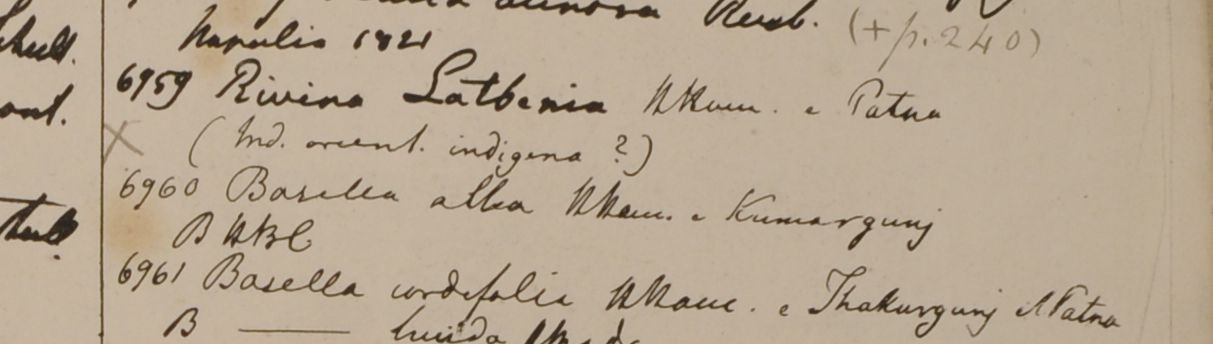 Roxb. (+ p. 240)
Napalia 1821
6959 Rivina Latbenia HHam. e Patna
( Ind. orient. indigena ? )
6960 Basella alba HHam. e Kumargunj
B HBC
6961 Basella cordifolia HHam. e Thakurgunj et Patna
B —— lucida